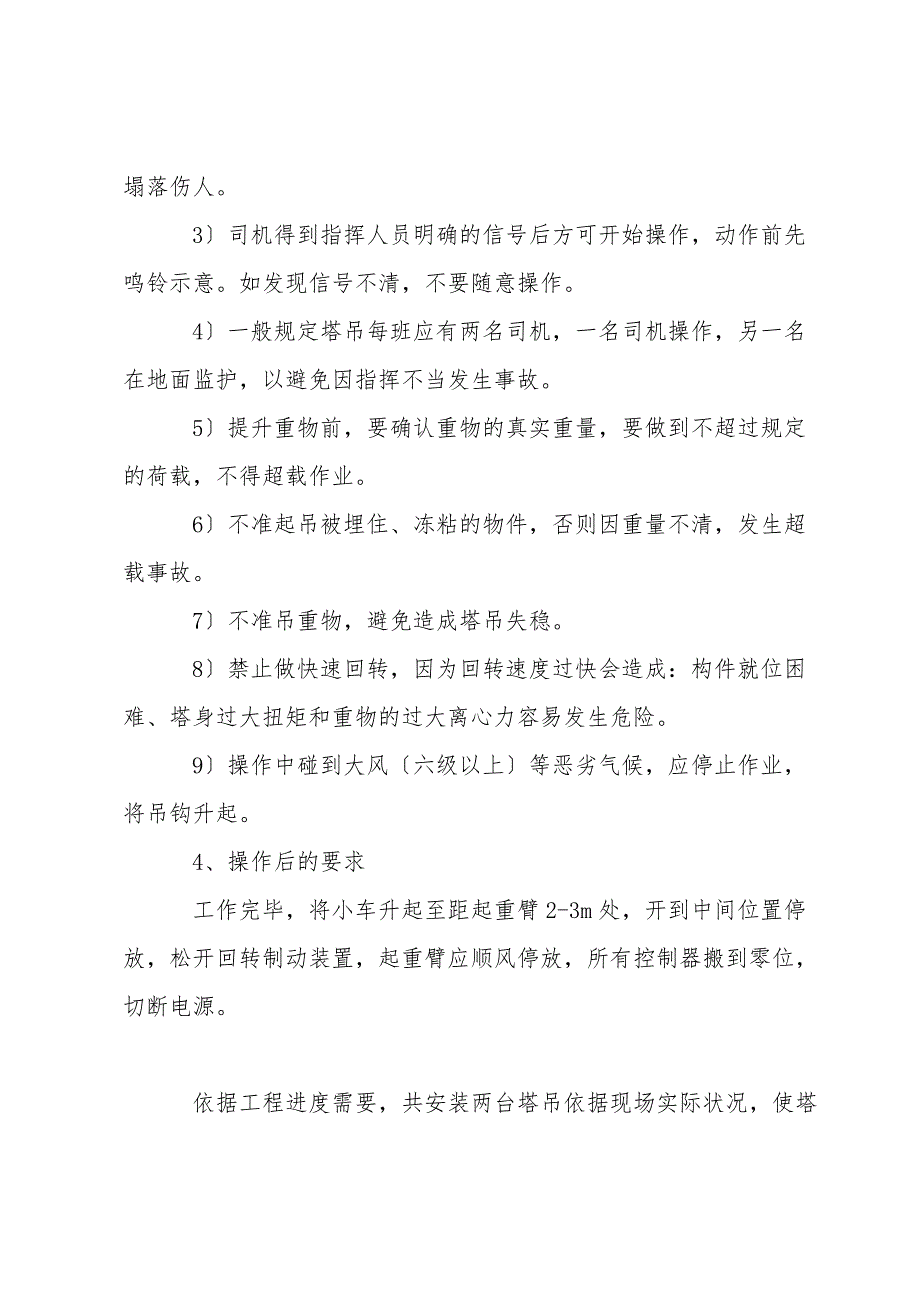 塌落伤人。
3〕司机得到指挥人员明确的信号后方可开始操作，动作前先
鸣铃示意。如发现信号不清，不要随意操作。
4〕一般规定塔吊每班应有两名司机，一名司机操作，另一名
在地面监护，以避免因指挥不当发生事故。
5〕提升重物前，要确认重物的真实重量，要做到不超过规定
的荷载，不得超载作业。
6〕不准起吊被埋住、冻粘的物件，否则因重量不清，发生超
载事故。
7〕不准吊重物，避免造成塔吊失稳。
8〕禁止做快速回转，因为回转速度过快会造成：构件就位困
难、塔身过大扭矩和重物的过大离心力容易发生危险。
9〕操作中碰到大风〔六级以上〕等恶劣气候，应停止作业，
将吊钩升起。
4、操作后的要求
工作完毕，将小车升起至距起重臂2-3m处，开到中间位置停
放，松开回转制动装置，起重臂应顺风停放，所有控制器搬到零位，
切断电源。
依据工程进度需要，共安装两台塔吊依据现场实际状况，使塔